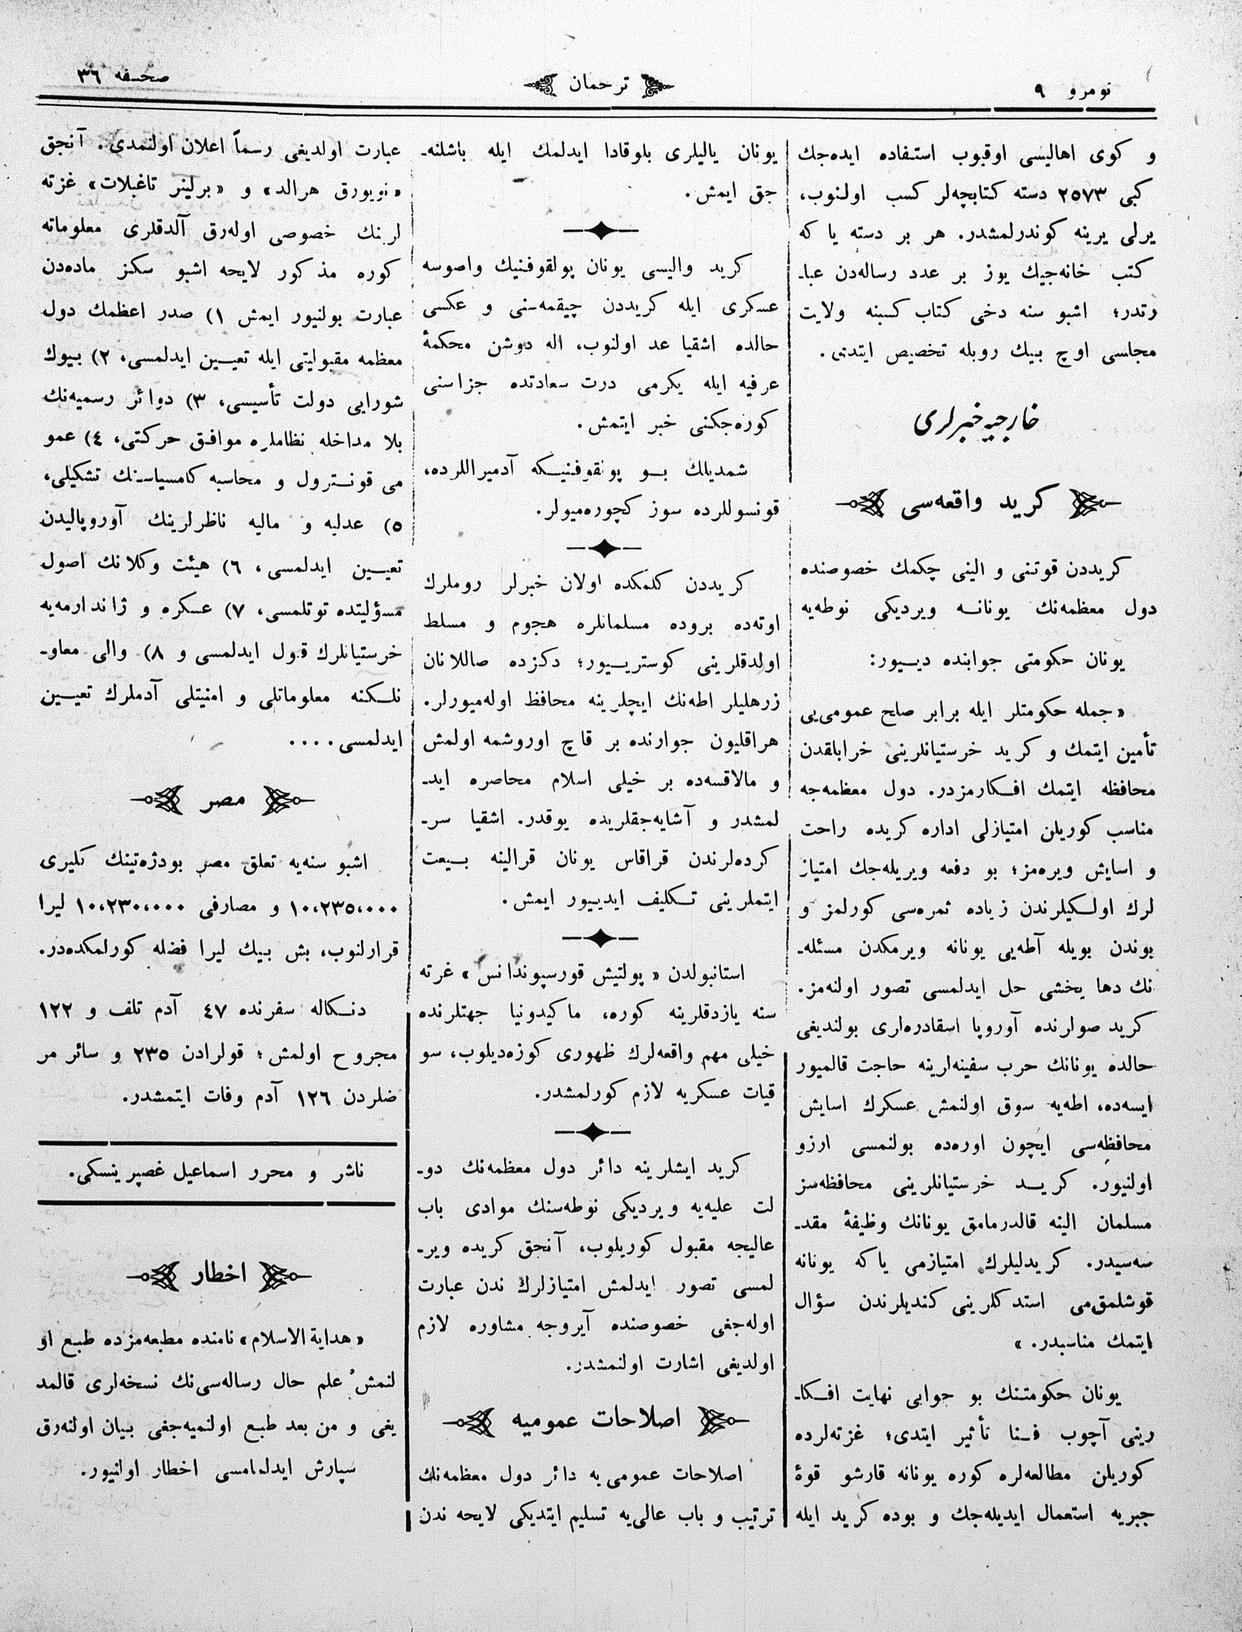 نومرو ٩
ترجمان
صحيفه ٣٦
و كوى اهاليسى اوقبوب استفاده ايده‌جك
كبى ٢٥٧٣ دسته كتابچه‌لر كسب اولنوب،
يرلى يرينه كوندرلمشدر. هر بر دسته يا كه
كتب خانه‌جيك يوز بر عدد رساله‌دن عبا-
رتدر؛ اشبو سنه دخى كتاب كسبنه ولايت
مجلسى اوچ بيك روبله تخصيص ايتدى.
خارجيه خبرلرى
كريد واقعه‌سى
كريددن قوتنى و الينى چكمك خصوصنده
دول معظمه‌نك يونانه ويرديكى نوطه‌يه
يونان حكومتى جوابنده ديييور:
«جمله حكومتلر ايله برابر صلح عمومى‌يى
تأمين ايتمك و كريد خرستيانلرينى خرابلقدن
محافظه ايتمك افكارمزدر. دول معظمه‌جه
مناسب كوريلن امتيازلى اداره كريده راحت
و اسايش ويره‌مز؛ بو دفعه ويريله‌جك امتياز
لرك اولكيلرندن زياده ثمره‌سى كورلمز و
بوندن بويله آطه‌يى يونانه ويرمكدن مسئله-
نك دها يخشى حل ايدلمسى تصور اولنه‌مز.
كريد صولرنده آوروپا اسقادره‌لرى بولنديغى
حالده يونانك حرب سفينه‌لرينه حاجت قالميور
ايسه‌ده، اطه‌يه سوق اولنمش عسكرك اسايش
محافظه‌سى ايچون اوره‌ده بولنمسى ارزو
اولنيور. كريد خرستيانلرينى محافظه‌سز
مسلمان الينه قالدرمامق يونانك وظيفۀ مقد-
سه‌سيدر. كريدليلرك امتيازمى ياكه يونانه
قوشلمق‌مى استدكلرينى كنديلرندن سؤال
ايتمك مناسبدر.»
يونان حكومتنك بو جوابى نهايت افكا-
رينى آچوب فنا تأثير ايتدى؛ غزته‌لرده
كوريلن مطالعه‌لره كوره يونانه قارشو قوۀ
جبريه استعمال ايديله‌جك و بوده كريد ايله
يونان ياليلرى بلوقادا ايدلمك ايله باشلنه-
جق ايمش.
كريد واليسى يونان پولقوفنيك واصوسه
عسكرى ايله كريددن چيقمه‌سنى و عكسى
حالده اشقيا عد اولنوب، اله دوشن محكمۀ
عرفيه ايله يكرمى درت سعادتده جزاسنى
كوره‌جكنى خبر ايتمش.
شمديلك بو پولقوفنيكه آدميراللرده،
قونسوللرده سوز كچوره‌ميولر.
كريددن كلمكده اولان خبرلر روملرك
اوته‌ده بروده مسلمانلره هجوم و مسلط
اولدقلرينى كوستريیور؛ دكزده صاللانان
زرهليلر اطه‌نك ايچلرينه محافظ اوله‌ميورلر.
هراقليون جوارنده بر قاچ اوروشمه اولمش
و مالاقسه‌ده بر خيلى اسلام محاصره ايد-
لمشدر و آشايه‌جقلريده يوقدر. اشقيا سر-
كرده‌لرندن قراقاس يونان قرالينه بيعت
ايتملرينى تكليف ايدييور ايمش.
استانبولدن «پولتيش قورسپوندانس» غزته
سنه يازدقلرينه كوره، ماكيدونيا جهتلرنده
خيلى مهم واقعه‌لرك ظهورى كوزه‌ديلوب، سو
قيات عسكريه لازم كورلمشدر.
كريد ايشلرينه دائر دول معظمه‌نك دو-
لت عليه‌يه ويرديكى نوطه‌سنك موادى باب
عاليجه مقبول كوريلوب، آنجق كريده وير-
لمسى تصور ايدلمش امتيازلرك ندن عبارت
اوله‌جغى خصوصنده آيروجه مشاوره لازم
اولديغى اشارت اولنمشدر.
اصلاحات عموميه
اصلاحات عمومى‌يه دائر دول معظمه‌نك
ترتيب و باب عالى‌يه تسليم ايتديكى لايحه ندن
عبارت اولديغى رسماً اعلان اولنمدى. آنجق
«نويورق هرالد» و «برلينر تاغبلات» غزته
لرينك خصوصى اوله‌رق آلدقلرى معلوماته
كوره مذكور لايحه اشبو سكز ماده‌دن
عبارت بولنيور ايمش ١) صدر اعظمك دول
معظمه مقبوليتى ايله تعيين ايدلمسى، ٢) بيوك
شوراى دولت تأسيسى، ٣) دوائر رسميه‌نك
بلا مداخله نظاملره موافق حركتى، ٤) عمو
مى قونترول و محاسبه كامسياسنك تشكيلى،
٥) عدليه و ماليه ناظرلرينك آوروپاليدن
تعيين ايدلمسى، ٦) هيئت وكلانك اصول
مسؤليتده توتلمسى، ٧) عسكره و ژاندارمه‌يه
خرستيانلرك قبول ايدلمسى و ٨) والى معاو-
نلكنه معلوماتلى و امنيتلى آدملرك تعيين
ايدلمسى....
مصر
اشبو سنه‌يه تعلق مصر بودژه‌تينك كليرى
١٠،٢٣٥،٠٠٠ و مصارفى ١٠،٢٣٠،٠٠٠ ليرا
قرارلنوب، بش بيك ليرا فضله كورلمكده‌در.
دنكاله سفرنده ٤٧ آدم تلف و ١٢٢
مجروح اولمش؛ قولرادن ٢٣٥ و سائر مر
ضلردن ١٢٦ آدم وفات ايتمشدر.
ناشر و محرر اسماعيل غصپرينسكى.
اخطار
«هداية الاسلام» نامنده مطبعه‌مزده طبع او
لنمش علم حال رساله‌سى‌نك نسخه‌لرى قالمد
يغى و من بعد طبع اولنميه‌جغى بيان اولنه‌رق
سپارش ايدلمامسى اخطار اولنيور.